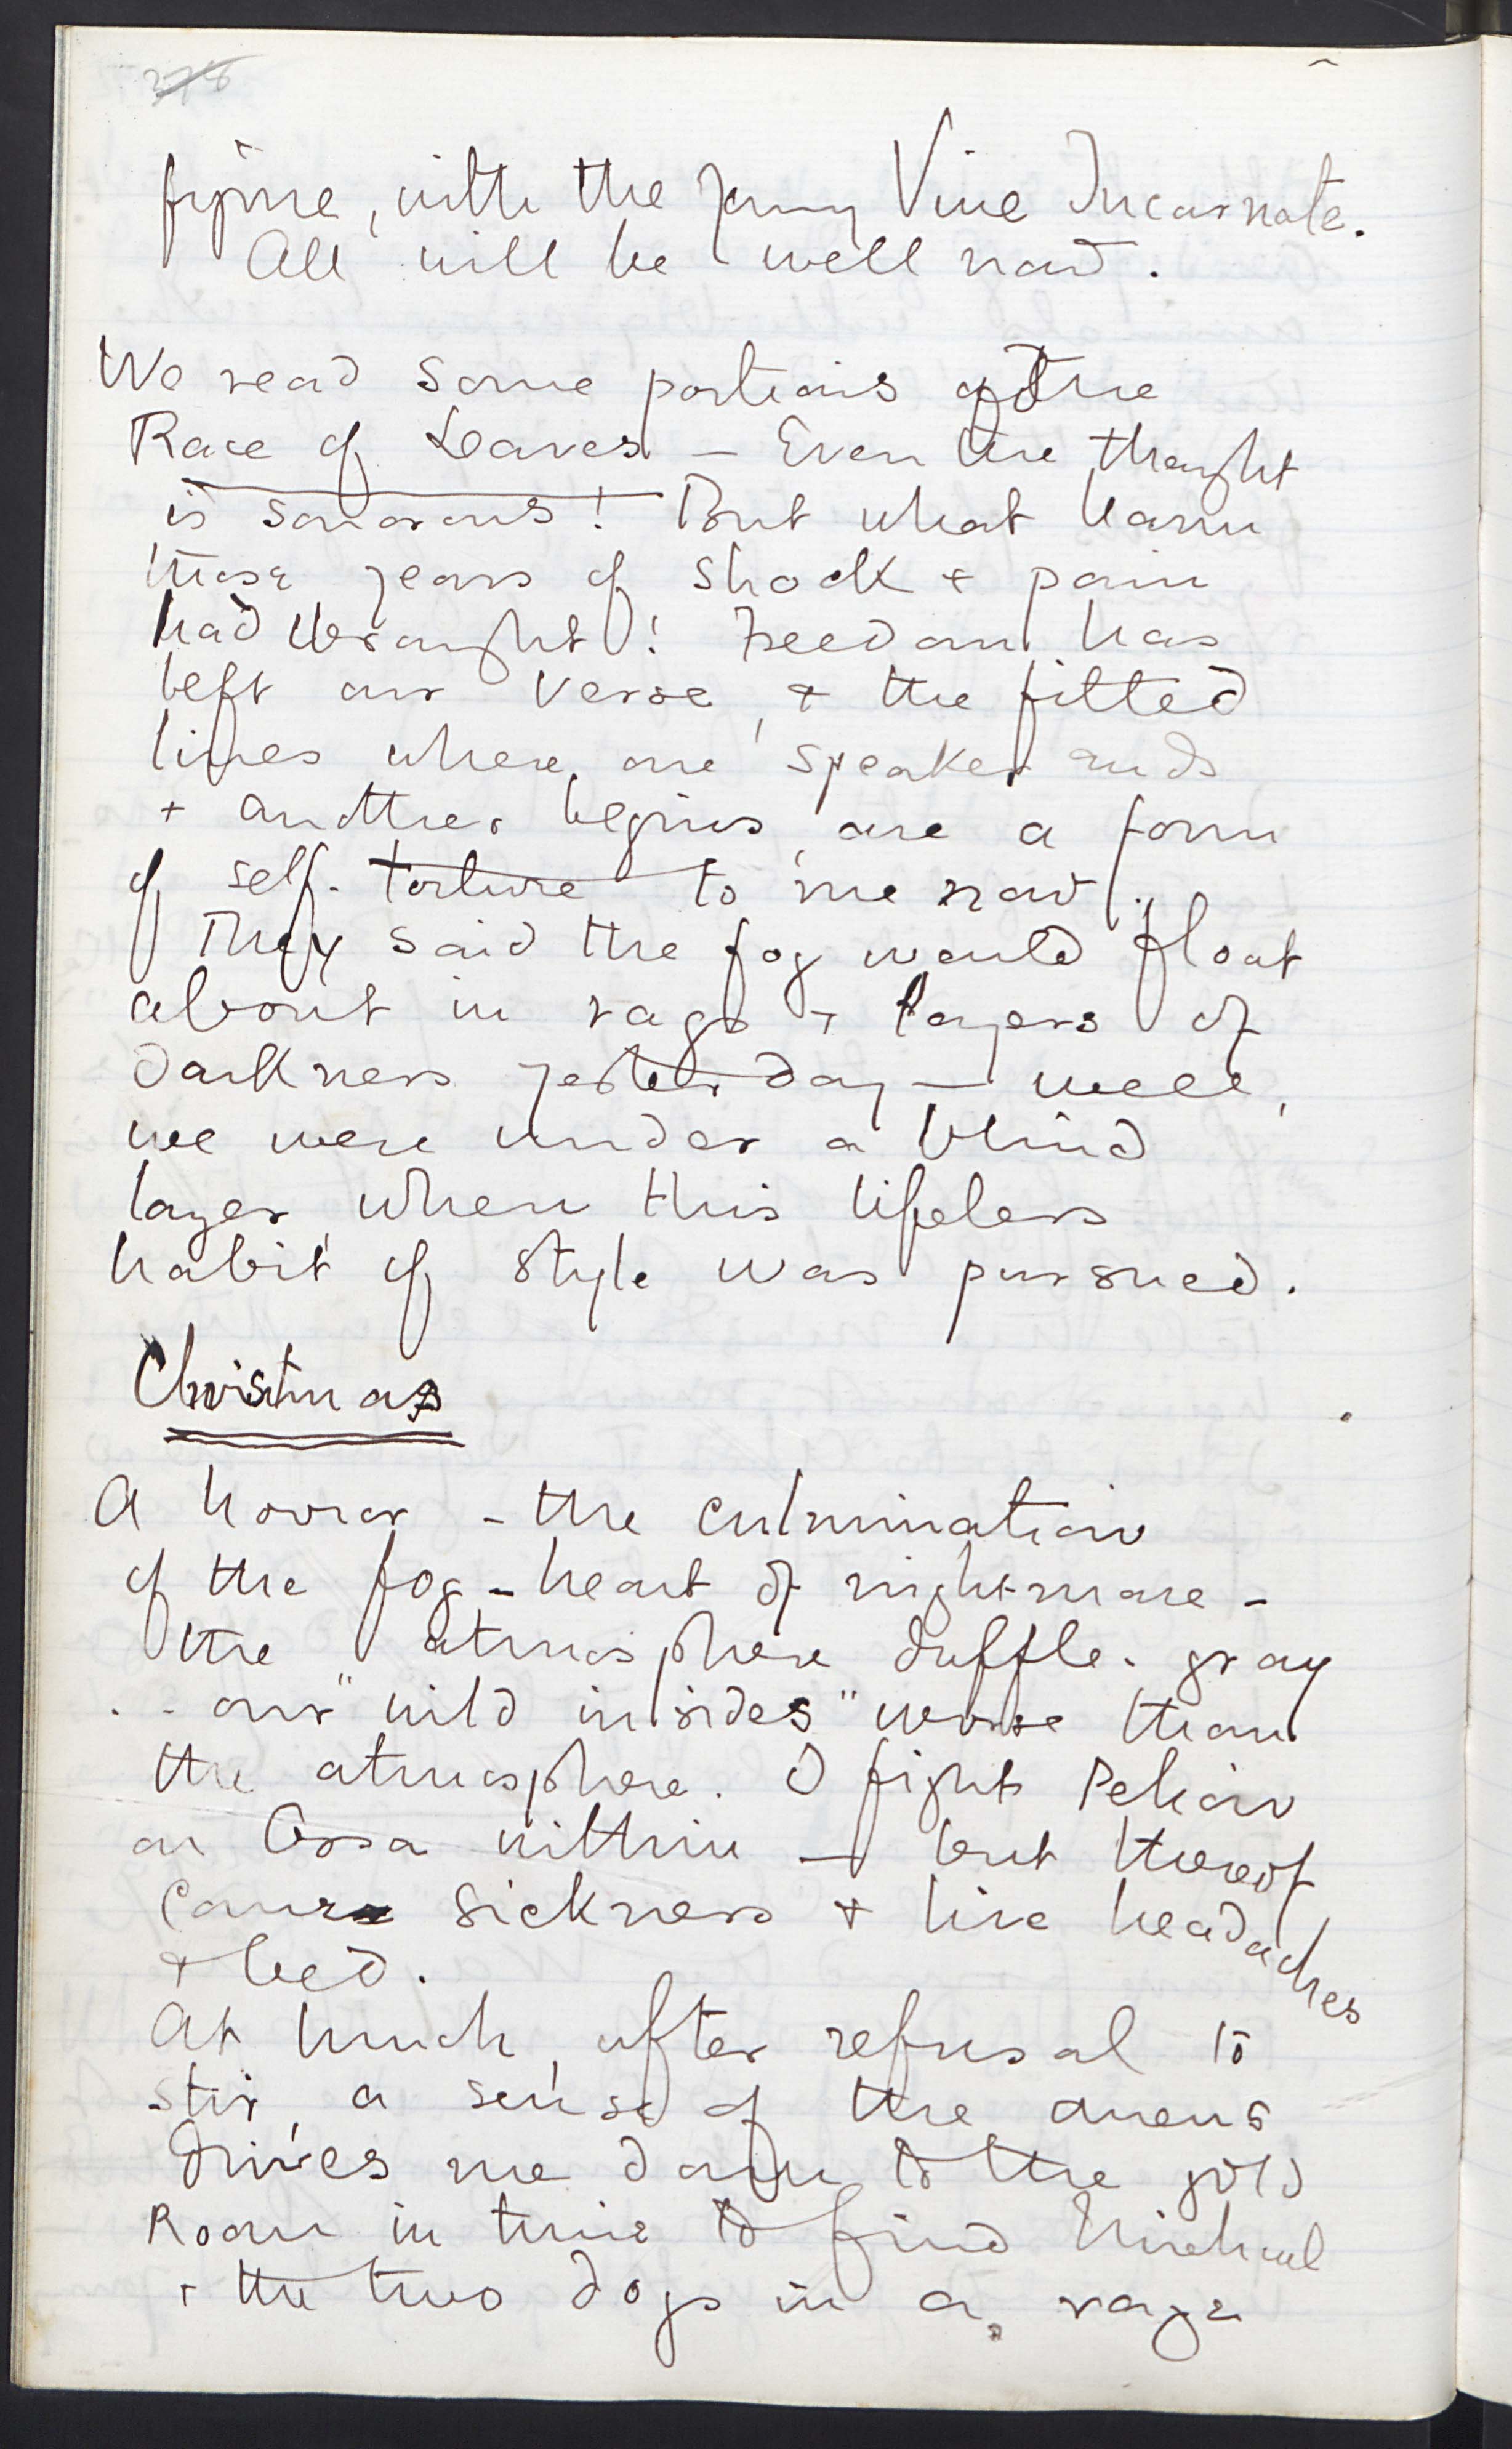 figure, with the young Vine Incarnate.
All will be well now.
We read some portions of the
Race of Leaves — Even the thought
is sonorous! But what harm
those years of shock & pain
had wrought! Freedom has
left our verse, & the fitted
lines where one speaker ends
& another begins, are a form
of self-torture to me now.
They said the fog would float
about in rags & layers of
darkness yesterday — well,
we were under a blind
layer when this lifeless
habit of style was pursued.
Christmas
A horror - the culmination
of the fog - heart of nightmare -
the atmosphere duffle-gray
. . our "wild insides" worse than
the atmosphere. I fight Pelion
on Ossa within — but thereof
comes sickness & live headaches
& bed.
At lunch, after refusal to
stir, a sense of the
drives me down to the gold
Room in time to find Michael
& the two dogs in a rage